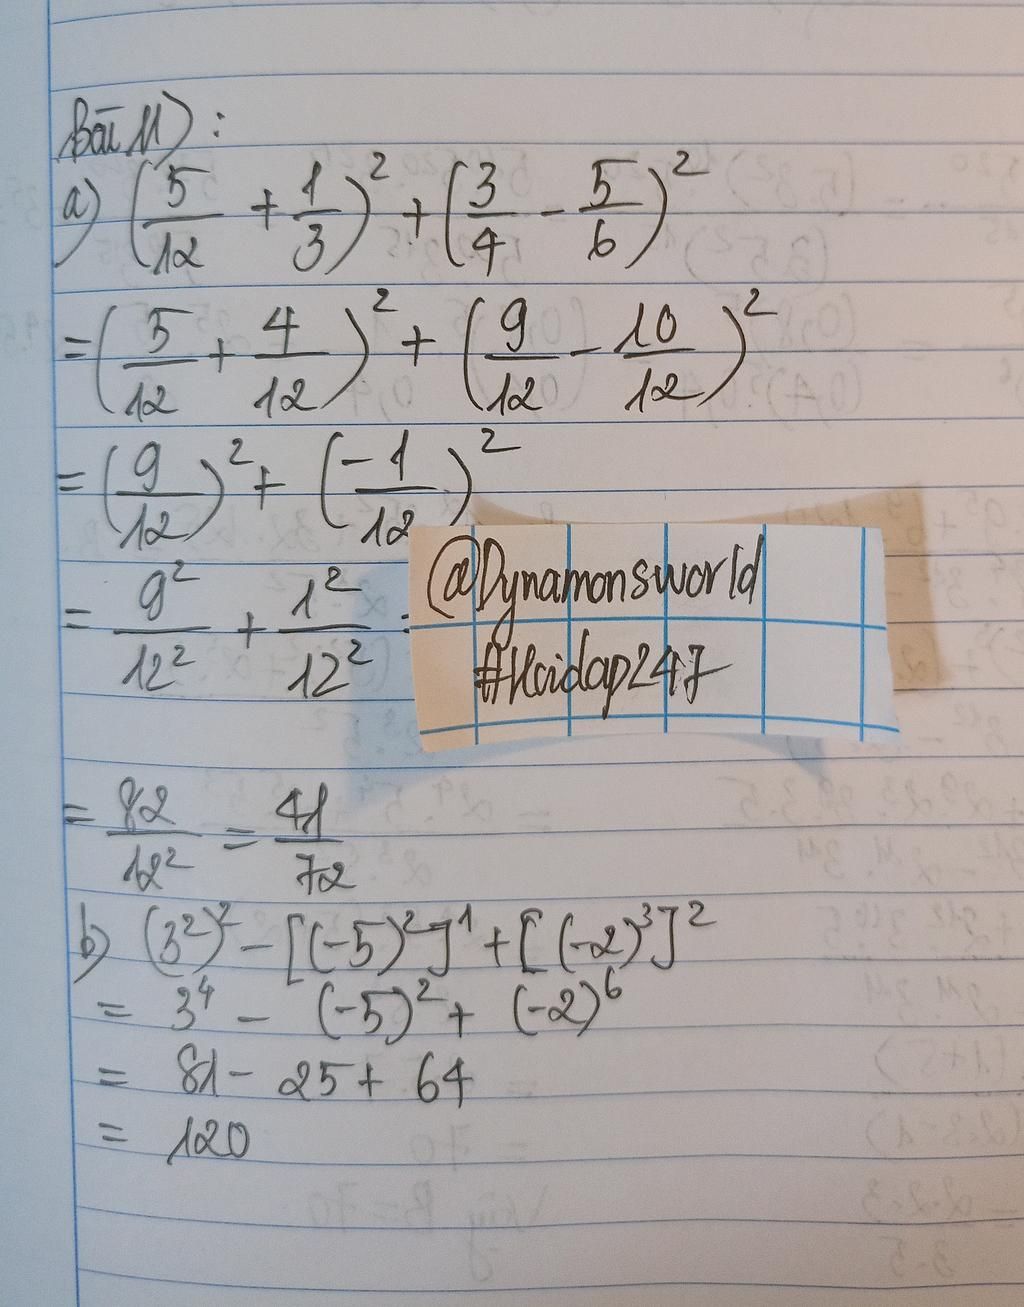 Bài 11):
a) (5/12 + 1/3)² + (3/4 - 5/6)²
= (5/12 + 4/12)² + (9/12 - 10/12)²
= (9/12)² + (-1/12)²
= 9²/12² + 1²/12²
@Dynamonsworld
#Hoidap247
= 82/12² = 41/72
b) (3²)² - [(-5)²]¹ + [(-2)³]²
= 3⁴ - (-5)² + (-2)⁶
= 81 - 25 + 64
= 120